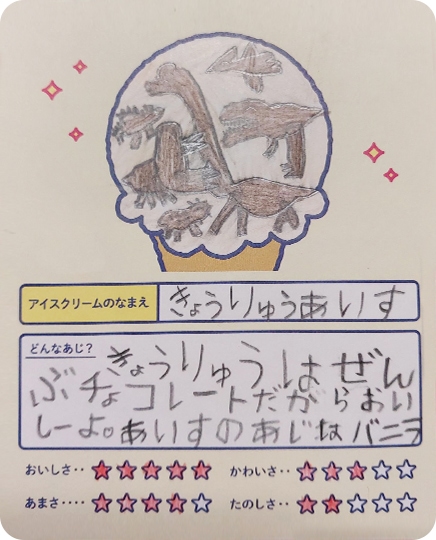 アイスクリームのなまえ
きょうりゅうあいす
どんなあじ?
きょうりゅうはぜん
ぶチョコレートだがらおい
しーよ。あいすのあじはバニラ
おいしさ‥ ★★★★★ かわいさ‥ ★★★☆☆
あまさ‥‥ ★★★★☆ たのしさ‥ ★★☆☆☆